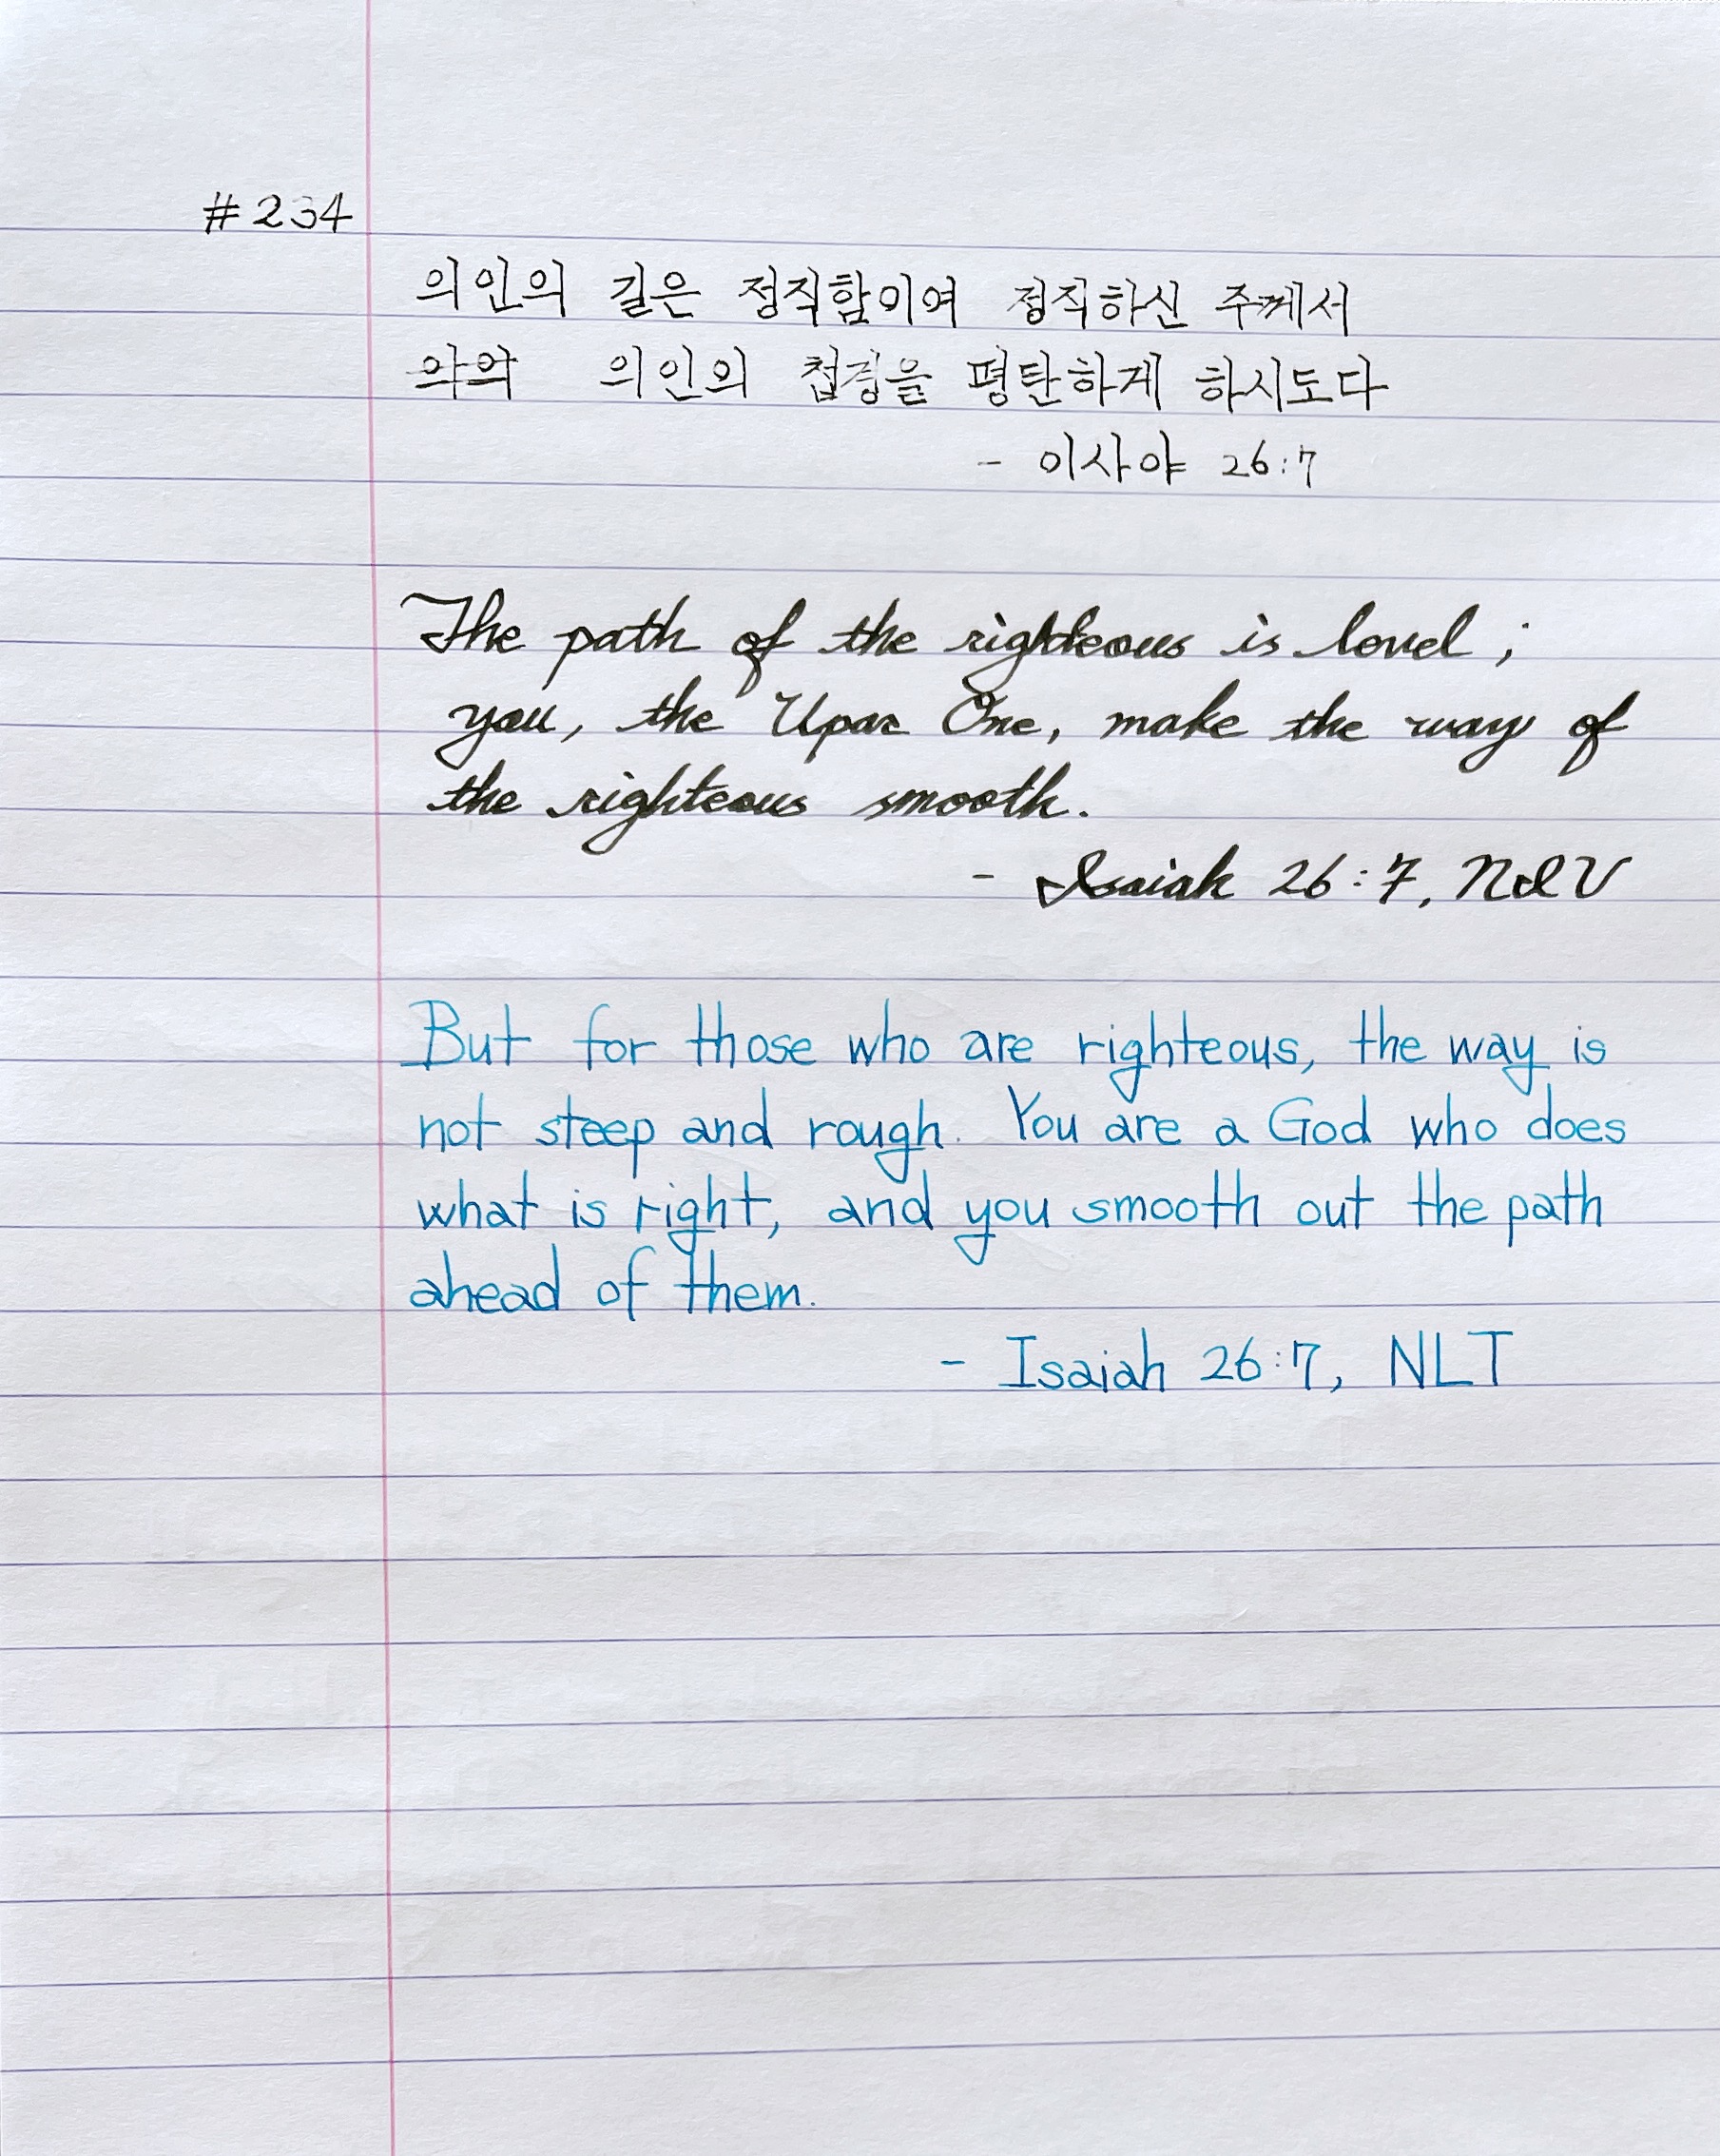 #234
의인의 길은 정직함이여 정직하신 주께서
의인의 첩경을 평탄하게 하시도다
- 이사야 26:7
The path of the righteous is level;
you, the Uprig One, make the way of
the righteous smooth.
- Isaiah 26:7, NIV
But for those who are righteous, the way is
not steep and rough. You are a God who does
what is right, and you smooth out the path
ahead of them.
- Isaiah 26:7, NLT